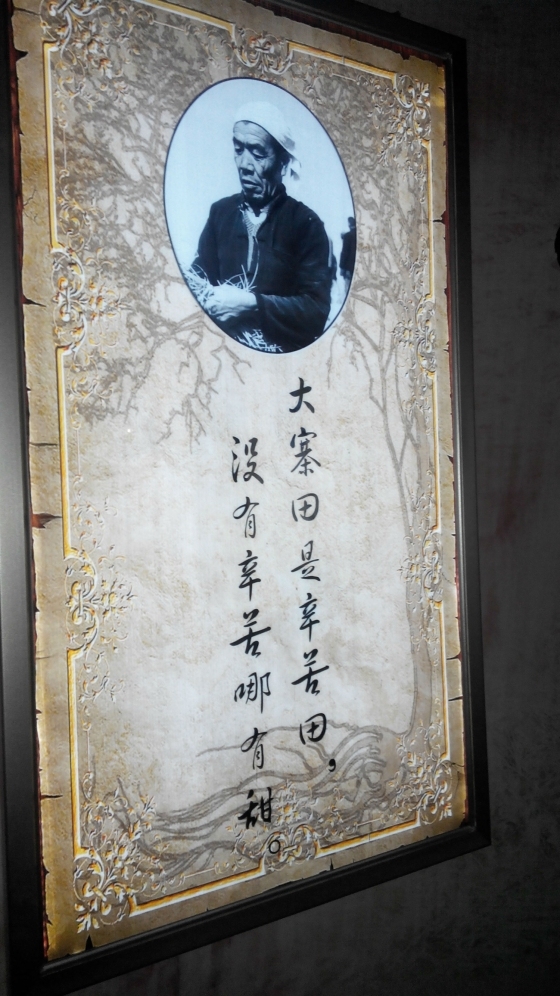 大寨田是辛苦田，
没有辛苦哪有甜。